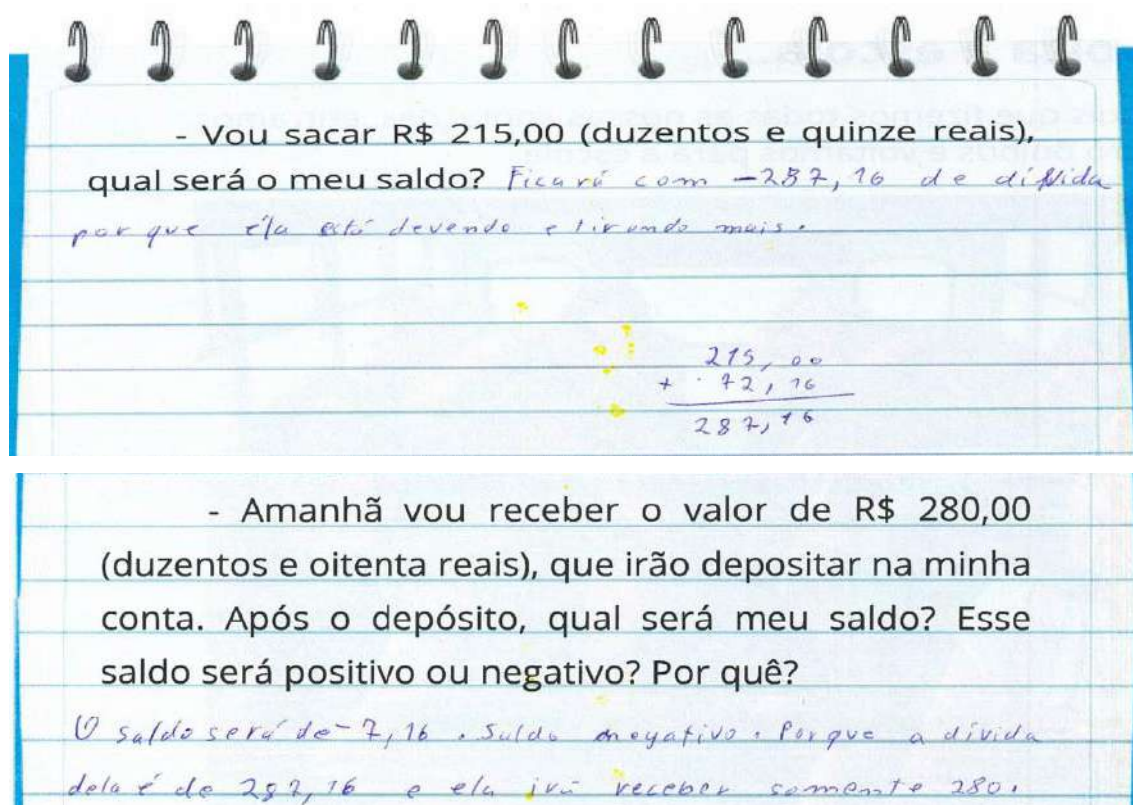 - Vou sacar R$ 215,00 (duzentos e quinze reais),
qual será o meu saldo? Ficará com -287,16 de dívida
por que ela está devendo e tirando mais.
215,00
+ 72,16
287,16
- Amanhã vou receber o valor de R$ 280,00
(duzentos e oitenta reais), que irão depositar na minha
conta. Após o depósito, qual será meu saldo? Esse
saldo será positivo ou negativo? Por quê?
O saldo será de -7,16. Saldo negativo. Porque a dívida
dela é de 287,16 e ela irá receber somente 280.